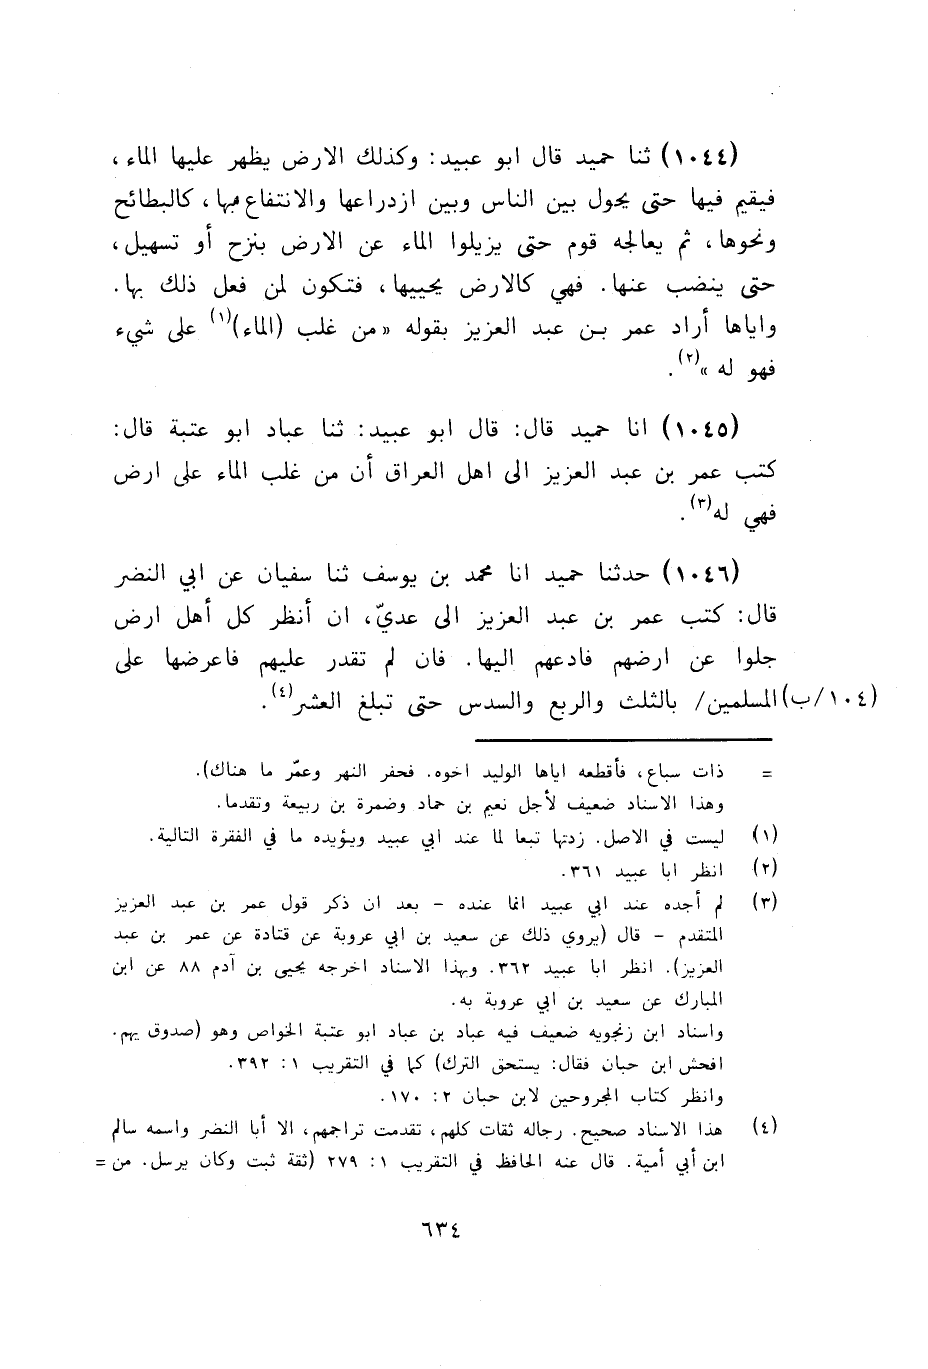 (١٠٤٤) ثنا حميد قال ابو عبيد: وكذلك الارض يظهر عليها الماء،
فيقيم فيها حتى يحول بين الناس وبين ازدراعها والانتفاع بها، كالبطائح
ونحوها، ثم يعالجه قوم حتى يزيلوا الماء عن الارض بنزح أو تسهيل،
حتى ينضب عنها. فهي كالارض يحييها، فتكون لمن فعل ذلك بها.
واياها أراد عمر بن عبد العزيز بقوله «من غلب (الماء)(١) على شيء
فهو له»(٢).
(١٠٤٥) انا حميد قال: قال ابو عبيد: ثنا عباد ابو عتبة قال:
كتب عمر بن عبد العزيز الى اهل العراق أن من غلب الماء على ارض
فهي له(٣).
(١٠٤٦) حدثنا حميد انا محمد بن يوسف ثنا سفيان عن ابي النضر
قال: كتب عمر بن عبد العزيز الى عديّ، ان أنظر كل أهل ارض
جلوا عن ارضهم فادعهم اليها. فان لم تقدر عليهم فاعرضها على
(١٠٤/ب) المسلمين/ بالثلث والربع والسدس حتى تبلغ العشر(٤).
= ذات سباع، فأقطعه اياها الوليد اخوه. فحفر النهر وعمّر ما هناك).
وهذا الاسناد ضعيف لأجل نعيم بن حماد وضمرة بن ربيعة وتقدما.
(١) ليست في الاصل. زدتها تبعا لما عند ابي عبيد ويؤيده ما في الفقرة التالية.
(٢) انظر ابا عبيد ٣٦١.
(٣) لم أجده عند ابي عبيد انما عنده – بعد ان ذكر قول عمر بن عبد العزيز
المتقدم – قال (يروي ذلك عن سعيد بن ابي عروبة عن قتادة عن عمر بن عبد
العزيز). انظر ابا عبيد ٣٦٢. وبهذا الاسناد اخرجه يحيى بن آدم ٨٨ عن ابن
المبارك عن سعيد بن ابي عروبة به.
واسناد ابن زنجويه ضعيف فيه عباد بن عباد ابو عتبة الخواص وهو (صدوق يهم.
افحش ابن حبان فقال: يستحق الترك) كما في التقريب ١: ٣٩٢.
وانظر كتاب المجروحين لابن حبان ٢: ١٧٠.
(٤) هذا الاسناد صحيح. رجاله ثقات كلهم، تقدمت تراجمهم، الا أبا النضر واسمه سالم
ابن أبي أمية. قال عنه الحافظ في التقريب ١: ٢٧٩ (ثقة ثبت وكان يرسل. من =
٦٣٤